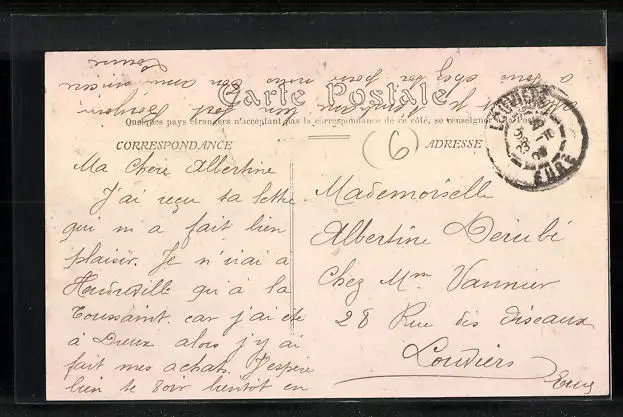 Carte Postale
Quelques pays étrangers n'acceptant pas la correspondance de ce côté, se renseigner à la Poste
CORRESPONDANCE
ADRESSE
(6)
LOUVIERS
EURE
Ma Chère Albertine
J'ai reçu ta lettre
qui m a fait bien
plaisir. Je n'irai à
qu'a la
Toussaint car j'ai été
à Dreux alors j'y ai
fait mes achats. J'espère
bien te voir bientôt en
a tous chez toi pour
Ton amie sincère
Mademoiselle
Albertine
Chez Mme Vannier
28 Rue des Oiseaux
Louviers
Eure